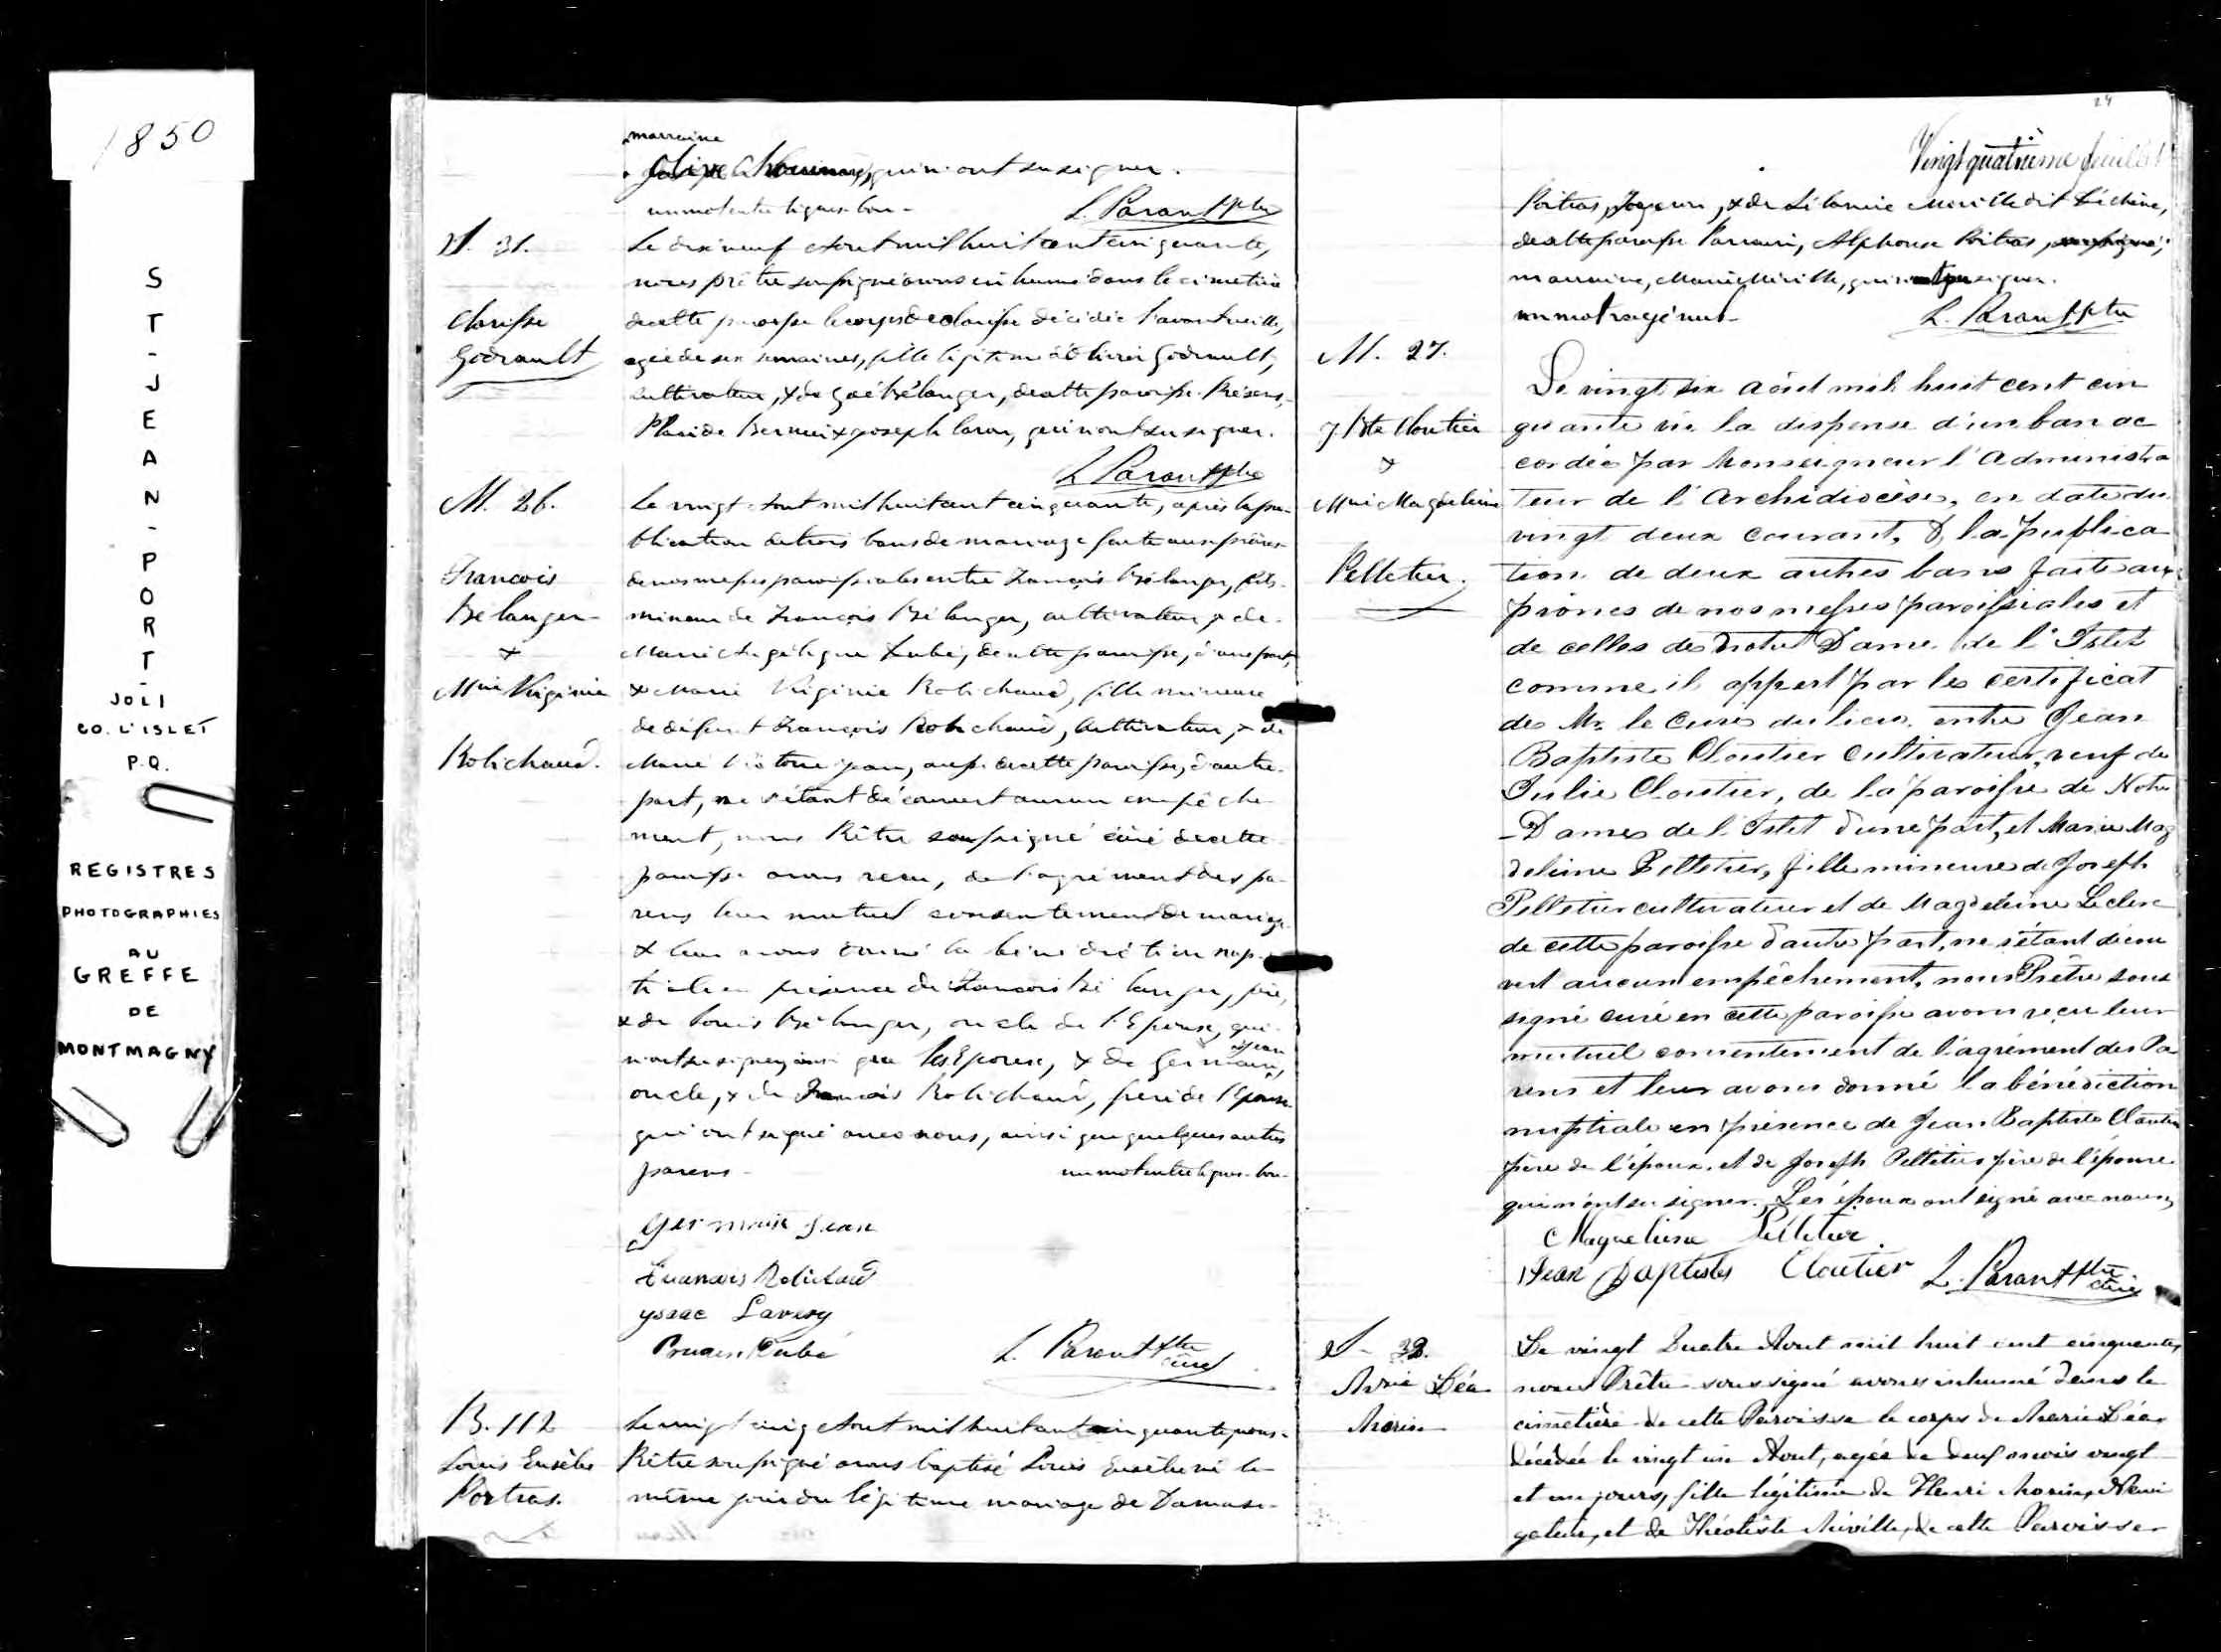 1850
ST-JEAN-PORT-
JOLI
CO. L'ISLET
P.Q.
REGISTRES
PHOTOGRAPHIES
AU
GREFFE
DE
MONTMAGNY
marraine
Olive qui n'ont su signer.
un mot entre lignes bon-
L. Parant Ptre
S. 31.
Clarisse
Godrault
Le dix neuf Aout mil huit cent cinquante,
nous prêtre soussigné avons inhumé dans le cimetière
de cette paroisse le corps de Clarisse décédée l'avant veille,
agée de six semaines, fille légitime d'Olivier Godrault,
cultivateur, & de Zoé Bélanger, de cette paroisse. Présens,
Placide Bernier & Joseph Caron, qui n'ont su signer.
L. Parant Ptre
M. 26.
François
Bélanger
&
Mrie Virginie
Robichaud.
Le vingt Aout mil huit cent cinquante, après la pu-
blication de trois bans de mariage faite aux prônes
de nos messes paroissiales entre François Bélanger, fils
mineur de François Bélanger, cultivateur & de
Marie Angélique Dubé, de cette paroisse, d'une part,
& Marie Virginie Robichaud, fille mineure
de défunt François Robichaud, cultivateur, & de
Marie Jean, aussi de cette paroisse, d'autre
part, ne s'étant découvert aucun empêche-
ment, nous Prêtre soussigné curé de cette
paroisse avons reçu, de l'agrément des pa-
rens leur mutuel consentement de mariage
& leur avons donné la bénédiction nup-
tiale en présence de François Bélanger, père,
& de Louis Bélanger, oncle de l'Epoux, qui
n'ont su signer, ainsi que les Epoux, & de Germain Jean,
oncle, & de François Robichaud, frère de l'Epouse
qui ont signé avec nous, ainsi que quelques autres
parens - un mot entre lignes bon-
Germain Jean
Francois Robichaud
ysaac Lavery
Dubé
L. Parant Ptre
curé
B. 112
Louis Eusèbe
Poitras.
Le vingt cinq Aout mil huit cent cinquante, nous
Prêtre soussigné avons baptisé Louis Eusèbe né le
même jour du légitime mariage de Damase
24
Vingt quatrième feuillet
Poitras, & de Miville dit Déchène,
de cette paroisse. Parrain, Alphonse Poitras,
marraine, Marie Miville, qui signer.
un mot rayé nul -
L. Parant Ptre
M. 27.
J. Bte Cloutier
&
Mrie Magdeleine
Pelletier.
Le vingt six Août mil huit cent cin
quante vu la dispense d'un ban ac
cordée par Monseigneur l'Administra
teur de l'Archidiocèse, en date du
vingt deux courant, & la publica
tion de deux autres bans faite aux
prônes de nos messes paroissiales et
de celles de Notre Dame de l'Islet
comme il appert par le certificat
de Mr. le Curé du lieu. entre Jean
Baptiste Cloutier Cultivateur, veuf de
Julie Cloutier, de la paroisse de Notre
-Dame de l'Islet d'une part, et Marie Mag
deleine Pelletier, fille mineure de Joseph
Pelletier cultivateur et de Magdeleine Leclerc
de cette paroisse d'autre part, ne s'étant décou
vert aucun empêchement, nous Prêtre sous
signé curé en cette paroisse avons reçu leur
mutuel consentement de l'agrément des Pa
rens et leur avons donné la bénédiction
nuptiale en présence de Jean Baptiste Cloutier
père de l'époux, et de Joseph Pelletier père de l'épouse
qui n'ont su signer. Les époux ont signé avec nous,
Magueleine Pelletier
Jean Baptiste Cloutier
L. Parant Ptre
curé
S. 32.
Mrie Léa
Morin
Le vingt Quatre Aout mil huit cent cinquante,
nous Prêtre soussigné avons inhumé dans le
cimetière de cette Paroisse le corps de Marie Léa,
décédée le vingt un Aout, agée de deux mois vingt
et un jours, fille légitime de Henri Morin, Navi
gateur, et de Théotiste Miville, de cette Paroisse